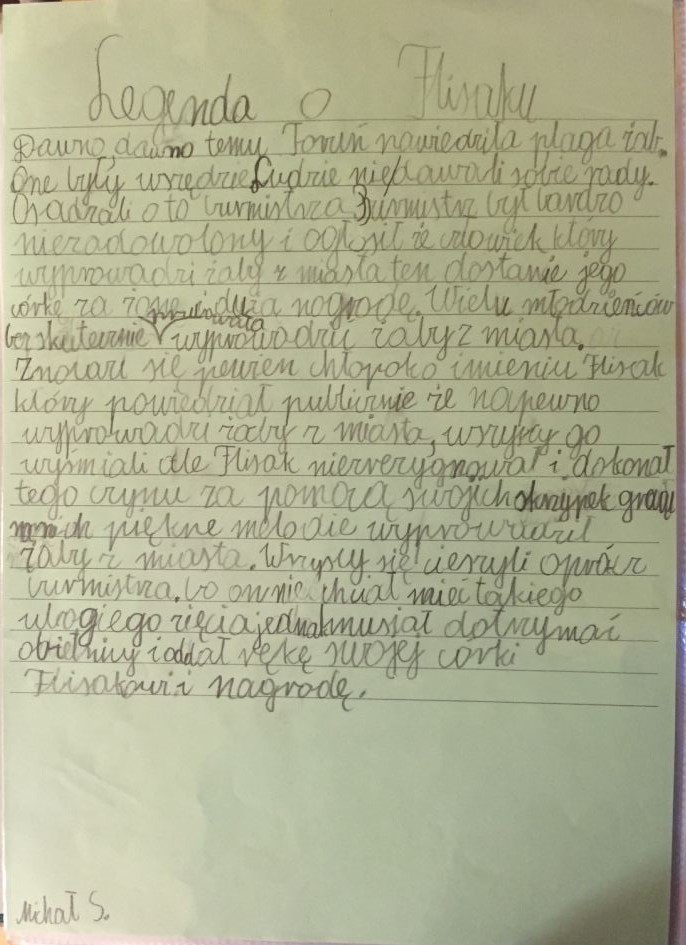 Legenda o Flisaku
Dawno, dawno temu Toruń nawiedziła plaga żab.
One były wszędzie Ludzie nie dawali sobie rady.
Osądzali o to burmistrza Burmistrz był bardzo
niezadowolony i ogłosił że człowiek który
wyprowadzi żaby z miasta ten dostanie jego
córkę za żonę i dużą nagrodę. Wielu młodzieńców
bezskutecznie próbowało wyprowadzić żaby z miasta.
Znalazł się pewien chłopak o imieniu Flisak
który powiedział publicznie że napewno
wyprowadzi żaby z miasta, wszyscy go
wyśmiali ale Flisak niezrezygnował i dokonał
tego czynu za pomocą swojich skrzypek grając
na nich piękne melodie wyprowadził
żaby z miasta. Wszyscy się cieszyli oprócz
burmistrza, bo on nie chciał mieć takiego
ubogiego zięcia jednak musiał dotrzymać
obietnicy i oddał rękę swojej córki
Flisakowi i nagrodę.
Michał S.